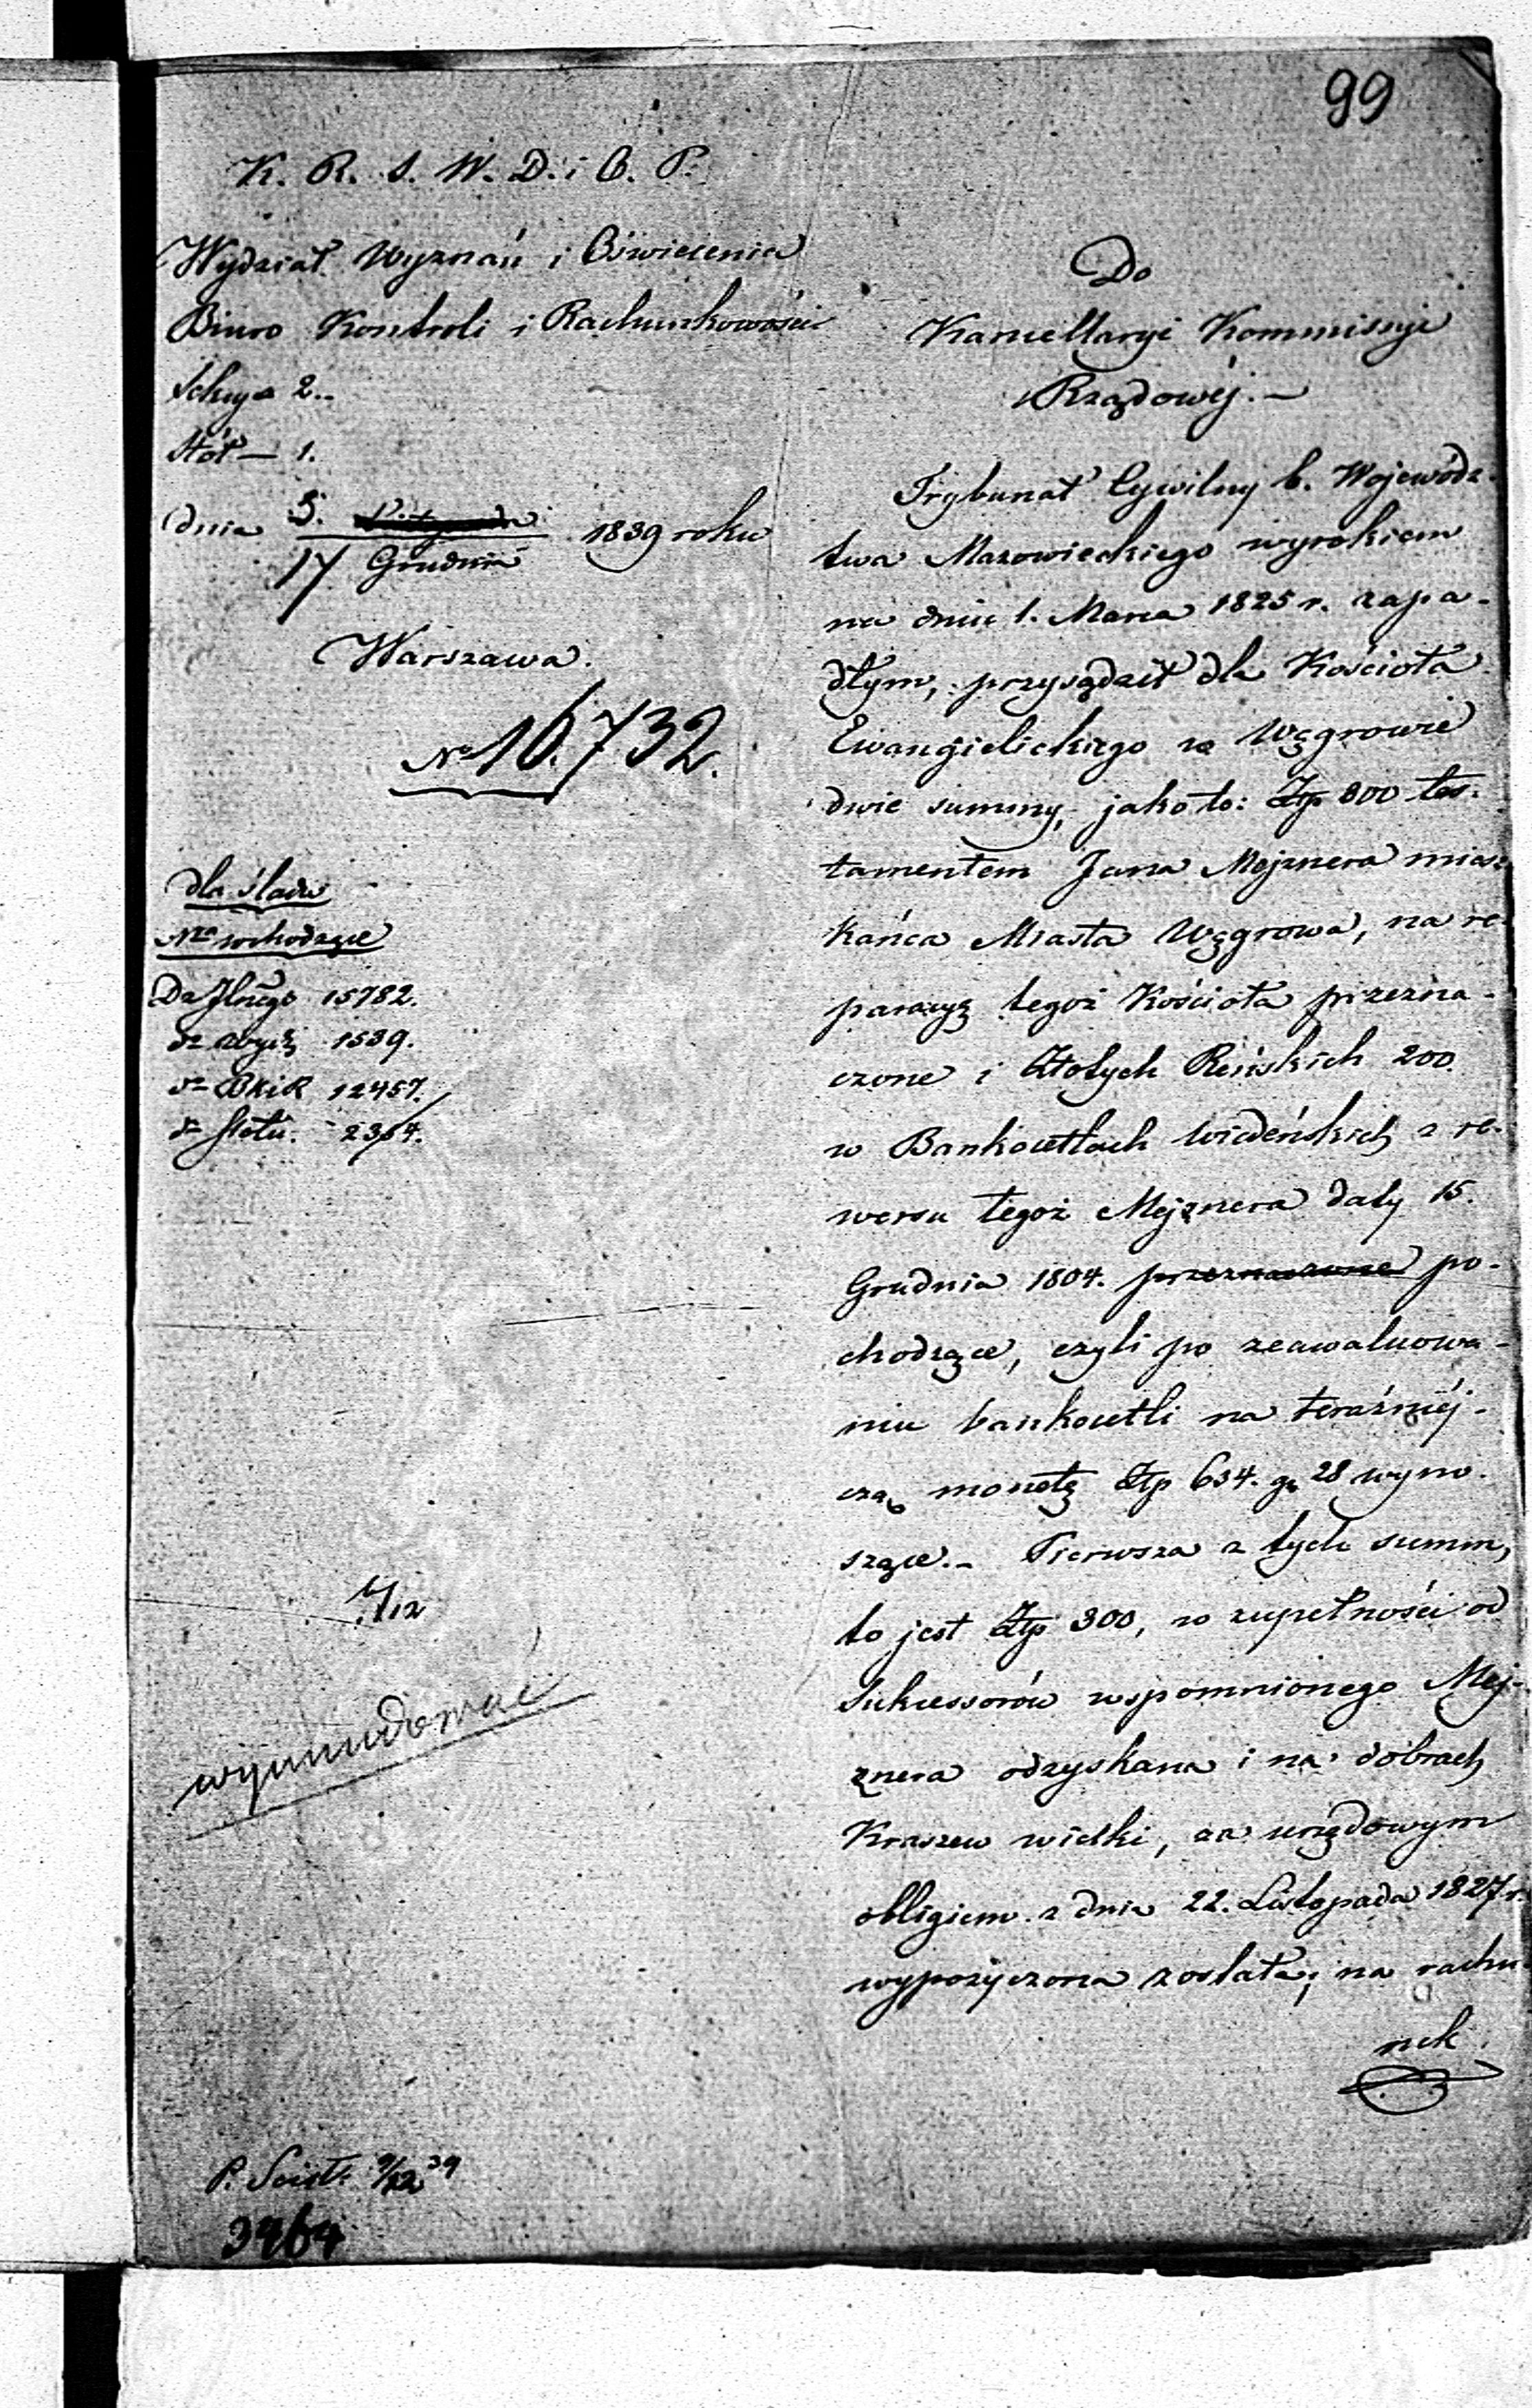 99
K. R. S. W. D. i O. P.
Wydział Wyznań i Oświecenia
Biuro Kontroli i Rachunkowości
Sekcya 2..
Stół — 1.
dnia 5. / 17 Grudnia 1839 roku
Warszawa.
No 16.732.
dla śladu
Nra wchodzące
Da Jlnego 15782.
da 1539.
da BKiR 12457.
da Stołu. 2364.
wymundować
P. Seist. 9/12 39
3464
Do
Kancellaryi Kommissyi
Rządowéj.—
Trybunał Cywilny b. Wojewódz-
twa Mazowieckiego wyrokiem
na dniu 1. Marca 1825 r. zapa-
dłym, przysądził dla Kościoła
Ewangielickiego w Węgrowie
dwie summy, jako to: Złp 300 tes-
tamentem Jana Mejznera miesz-
kańca Miasta Węgrowa, na re-
paracyą tegoż Kościoła przezna-
czone i Złotych Reńskich 200
w Bankocetlach wiedeńskich z re-
wersu tegoż Mejznera daty 15.
Grudnia 1804. przeznaczone po-
chodzące, czyli po zeawaluowa-
niu bankocetli na teraźniéj-
szą monetę Złp 634. gr 28 wyno-
szące.- Pierwsza z tych summ,
to jest Złp 300, w zupełności od
Sukcessorów wspomnionego Mej-
znera odzyskana i na dobrach
Kraszew wielki, za urzędowym
obligiem z dnia 22. Listopada 1827 r.
wypożyczona została; na rachu-
nek